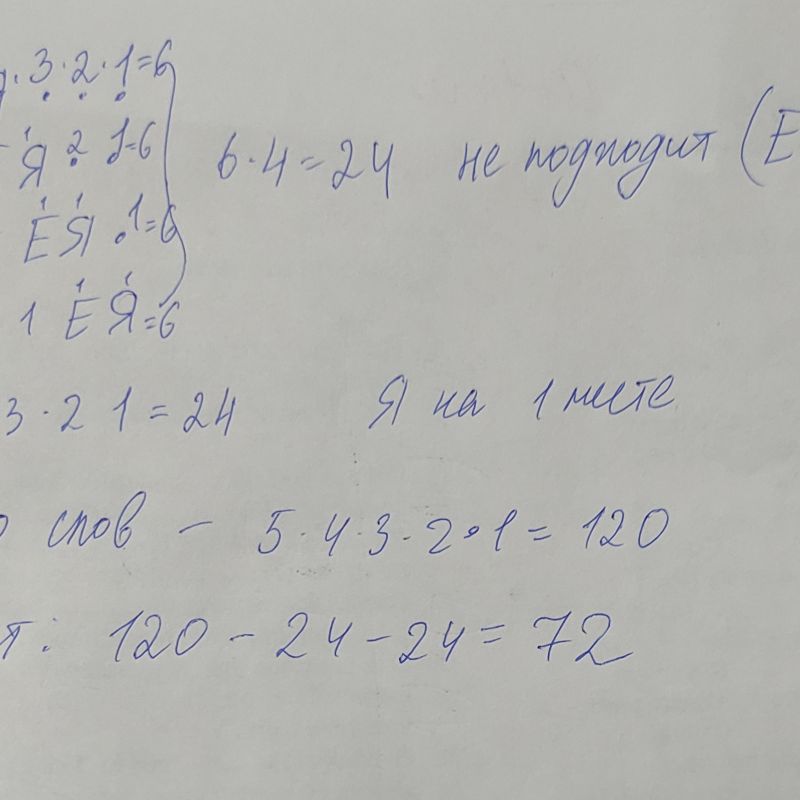 3·2·1=6
Я 2 1=6
6·4=24 не подходит (Е
1 1
ЕЯ ·1=6
1 ЕЯ=6
3·2 1=24 Я на 1 месте
слов - 5·4·3·2·1=120
т: 120-24-24=72